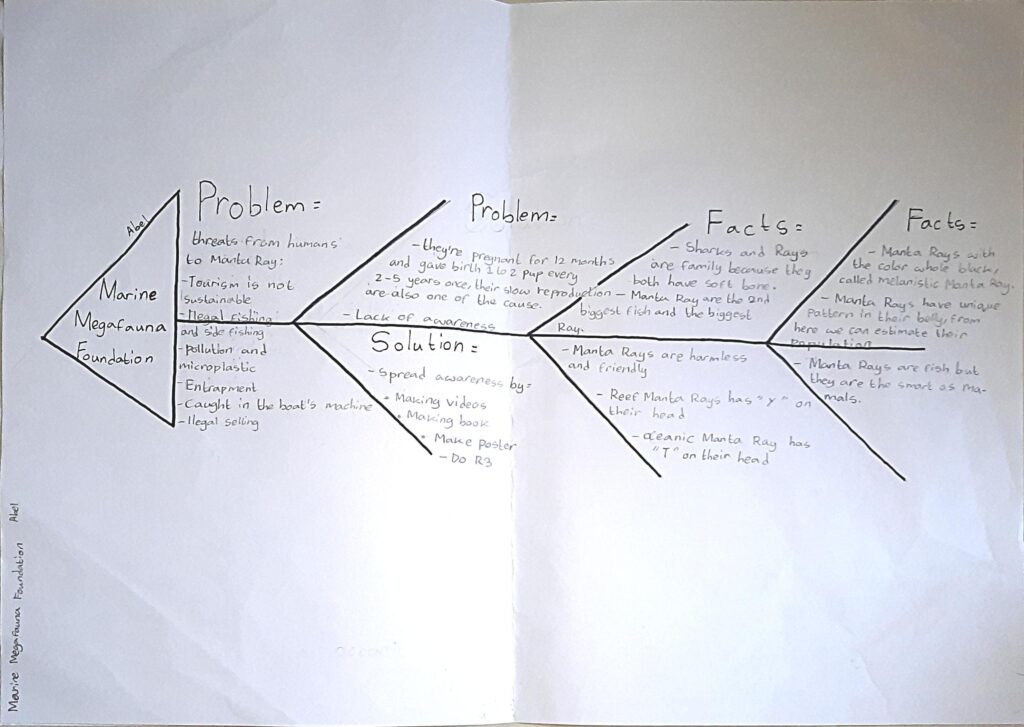 Abel
Marine
Megafauna
Foundation
Problem =
threats from humans
to Manta Ray:
- Tourism is not
sustainable
- Ilegal fishing
and side fishing
- pollution and
microplastic
- Entrapment
- Caught in the boat's machine
- Ilegal selling
Problem=
- they're pregnant for 12 months
and gave birth 1 to 2 pup every
2-5 years once, their slow reproduction
are also one of the cause.
- Lack of awareness
Solution =
- Spread awareness by:
• Making videos
• Making book
• Make poster
- Do R3
Facts =
- Sharks and Rays
are family because they
both have soft bone.
- Manta Ray are the 2nd
biggest fish and the biggest
Ray.
- Manta Rays are harmless
and friendly
- Reef Manta Rays has "Y" on
their head
- Oceanic Manta Ray has
"T" on their head
Facts =
- Manta Rays with
the color whole black,
called melanistic Manta Ray.
- Manta Rays have unique
pattern in their belly, from
here we can estimate their
population
- Manta Rays are fish but
they are the smart as ma-
mals.
Marine Megafauna Foundation Abel